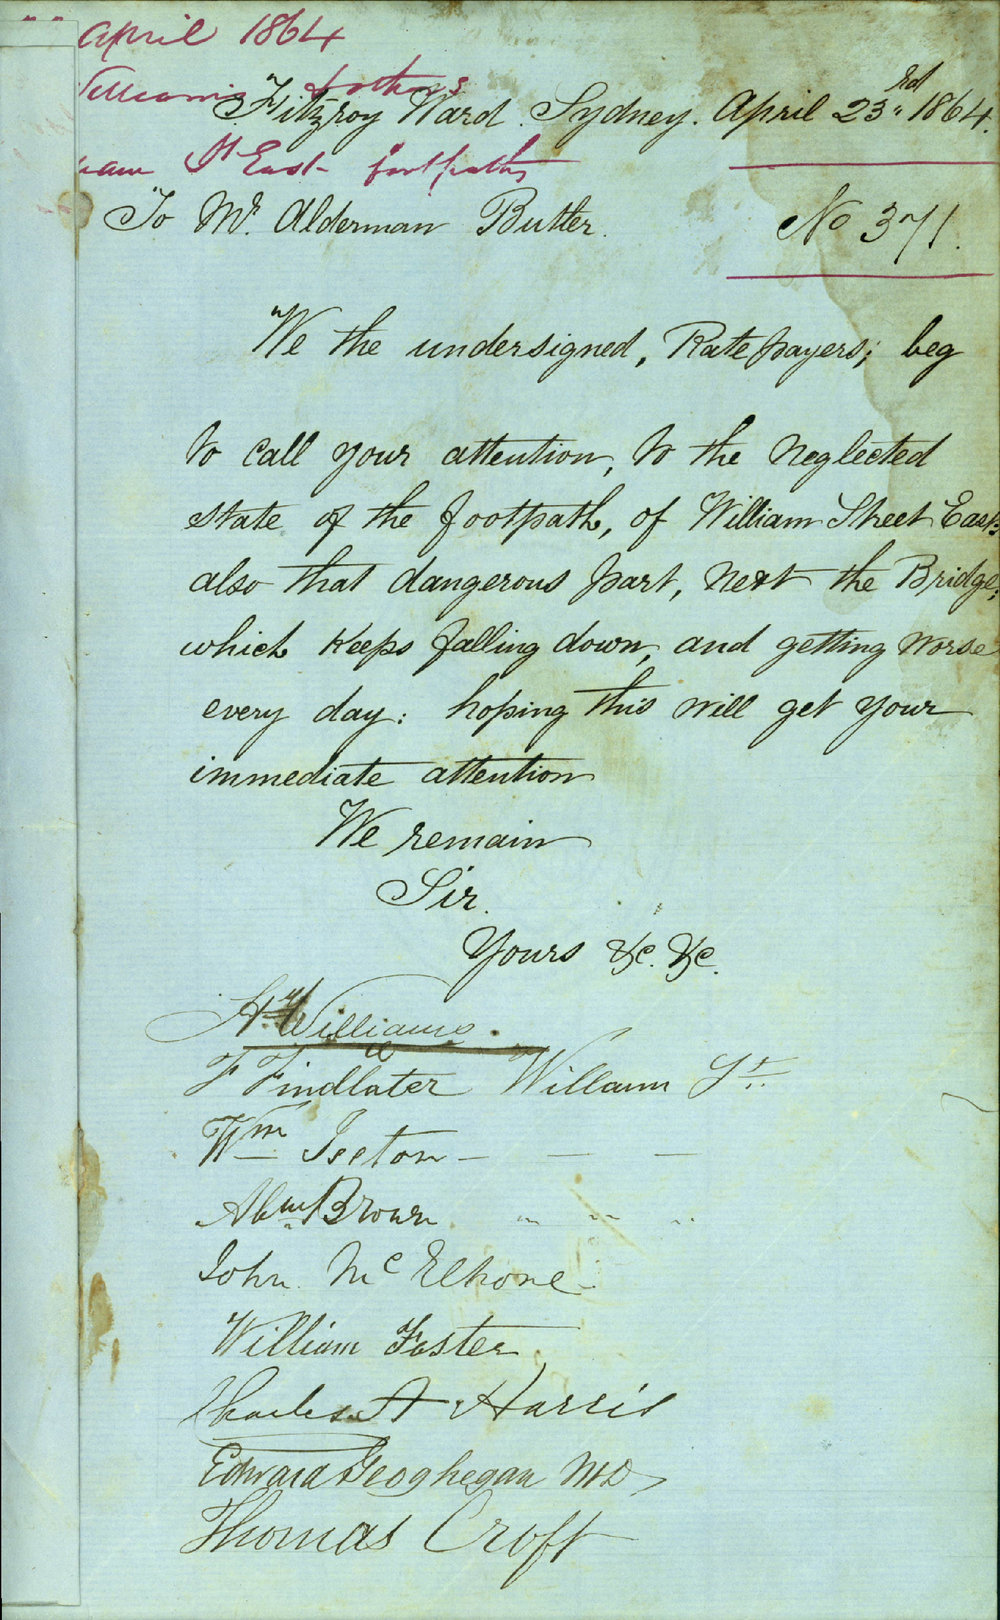 April 1864
Williams & others
Fitzroy Ward. Sydney. April 23rd 1864.
St East footpaths
To Mr. Alderman Butler.
No 371.
We the undersigned, Rate payers; beg
to call your attention, to the neglected
state of the footpath, of William Street East:
also that dangerous part, next the Bridge;
which keeps falling down, and getting worse
every day: hoping this will get your
immediate attention
We remain
Sir.
Yours &c. &c.
Hy Williams.
F Findlater Willam St.
Wm Iseton — — —
Abm Brown " " "
John McElhone
William Foster
Charles A Harris
Edward Geoghegan MD
Thomas Croft